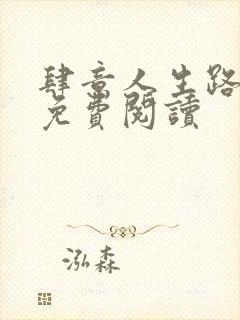 肆意人生路
免費閱讀
泓森